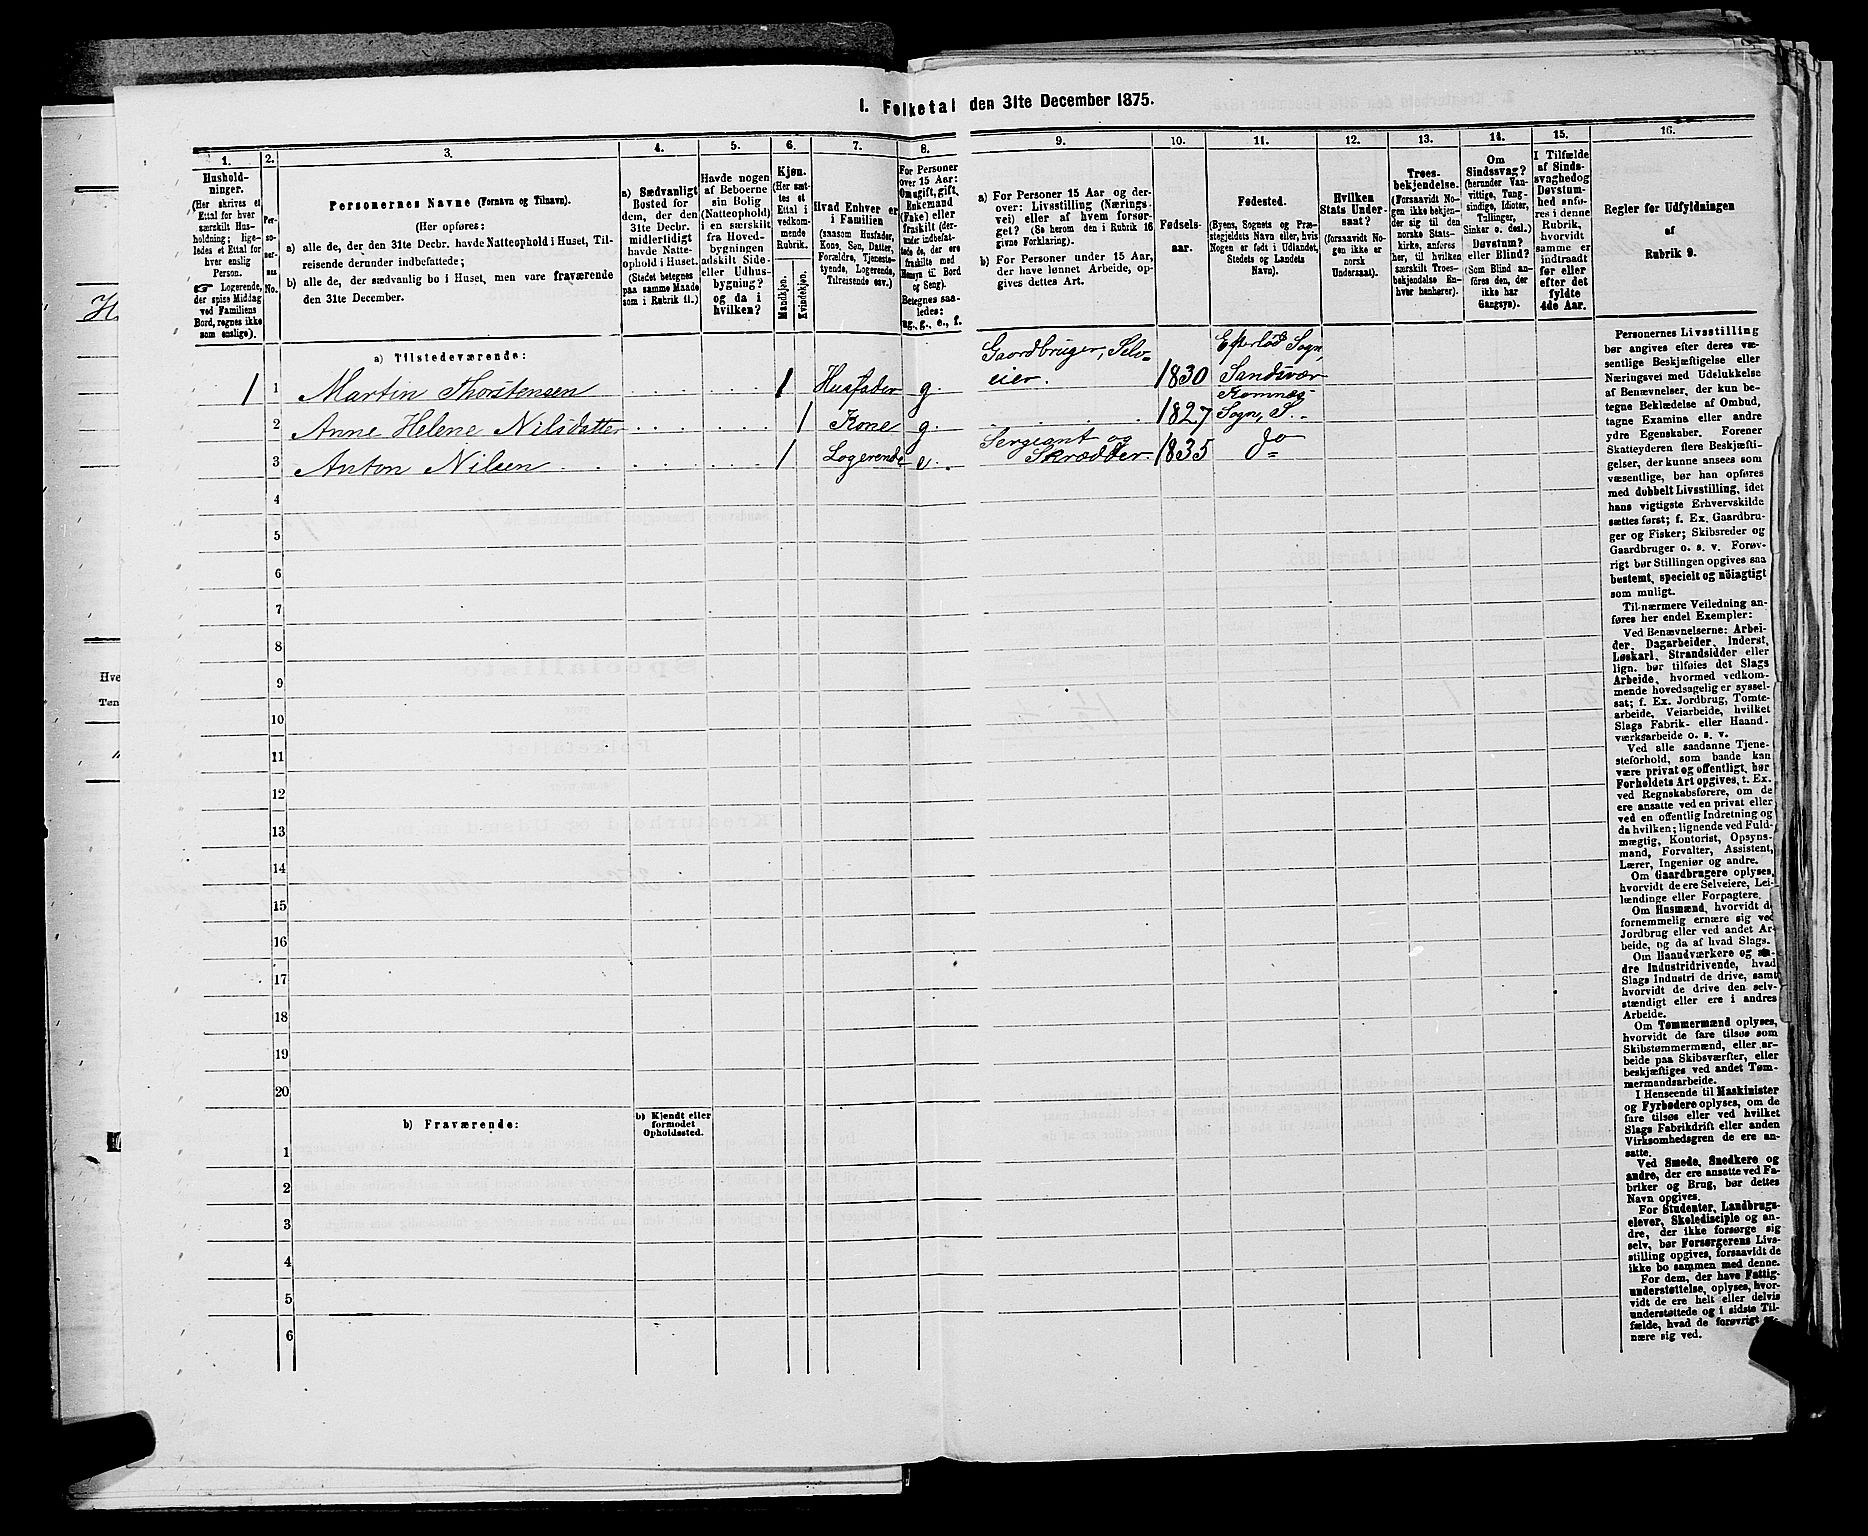 I. Folketal den 31te December 1875.
1.
2.
3.
4.
5.
6.
7.
8.
9.
10.
11.
12.
13.
14.
15.
16.
Hushold-
ninger.
(Her skrives et
Ettal for hver
særskilt Hus-
holdning; lige-
ledes et Ettal for
hver enslig
Person.
☞ Logerende,
der spise Middag
ved Familiens
Bord, regnes ikke
som enslige).
Per-
so-
ner-
nes
No.
Personernes Navne (Fornavn og Tilnavn).
(Her opføres:
a) alle de, der den 31te Decbr. havde Natteophold i Huset, Til-
reisende derunder indbefattede;
b) alle de, der sædvanlig bo i Huset, men vare fraværende
den 31te December.
a) Sædvanligt
Bosted for
dem, der den
31te Decbr.
midlertidigt
havde Natte-
ophold i Huset.
(Stedet betegnes
paa samme Maade
som i Rubrik 11.)
Havde nogen
af Beboerne
sin Bolig
(Natteophold)
i en særskilt
fra Hoved-
bygningen
adskilt Side-
eller Udhus-
bygning?
og da i
hvilken?
Kjøn.
(Her sæt-
tes et
Ettal i
vedkom-
mende
Rubrik.
Mandkjøn.
Kvindekjøn.
Hvad Enhver er
i Familien
(saasom Husfader,
Kone, Søn, Datter,
Forældre, Tjeneste-
tyende, Logerende,
Tilreisende osv.)
For Personer
over 15 Aar:
Om ugift, gift,
Enkemand
(Enke) eller
fraskilt (der-
under indbefat-
tede de, der ere
fraskilte med
Hensyn til Bord
og Seng).
Betegnes saa-
ledes:
ug., g., e., f.
a) For Personer 15 Aar og der-
over: Livsstilling (Nærings-
vei) eller af hvem forsør-
get? (Se herom den i Rubrik 16
givne Forklaring).
b) For Personer under 15 Aar,
der have lønnet Arbeide, op-
gives dettes Art.
Fødsels-
aar.
Fødested.
(Byens, Sognets og Præ-
stegjeldets Navn eller, hvis
Nogen er født i Udlandet,
Stedets og Landets
Navn).
Hvilken
Stats Under-
saat?
(forsaavidt No-
gen ikke er
norsk
Undersaat).
Troes-
bekjendelse.
(Forsaavidt No-
gen ikke bekjen-
der sig til den
norske Stats-
kirke, anføres
her, til hvilken
særskilt Troes-
bekjendelse En-
hver henhører).
Om
Sindssvag?
(herunder Van-
vittige, Tung-
sindige, Idioter,
Tullinger,
Sinker o. desl.)
Døvstum?
eller Blind?
(Som Blind an-
føres den, der
ikke har
Gangsyn).
I Tilfælde
af Sinds-
svaghed og
Døvstum-
hed anfø-
res i denne
Rubrik,
hvorvidt
samme er
indtraadt
før eller
efter det
fyldte
4de Aar.
Regler før Udfyldningen
af
Rubrik 9.
a) Tilstedeværende:
1 1 Martin Thorstensen 1 Husfader g. Gaardbruger, Selv-
eier. 1830 Efterlød Sogn,
Sandsvær
2 Anne Helene Nilsdatter 1 Kone g. 1827 Komnæs
Sogn, S.
3 Anton Nilsen 1 Logerende e. Sergeant og
Skrædder. 1835 do
4
5
6
7
8
9
10
11
12
13
14
15
16
17
18
19
20
b) Fraværende:
b) Kjendt eller
formodet
Opholdssted.
1
2
3
4
5
6
Personernes Livsstilling
bør angives efter deres væ-
sentlige Beskjæftigelse eller
Næringsvei med Udelukkelse
af Benævnelser, der kun be-
tegne Bekladelse af Ombud,
tagne Examina eller andre
ydre Egenskaber. Forener
Skatteyderen flere Beskjæfti-
gelser, der kunne ansees som
væsentlige, bør han opføres
med dobbelt Livsstilling, idet
hans vigtigste Erhvervskilde
sættes først; f. Ex. Gaardbru-
ger og Fisker; Skibsreder og
Gaardbruger o. s. v. Forøv-
rigt bør Stillingen opgives saa
bestemt, specielt og nöiagtigt
som muligt.
Til nærmere Veiledning an-
føres her endel Exempler:
Ved Benævnelserne: Arbei-
der, Dagarbeider, Inderst,
Løskarl, Strandsidder eller
lign. bør tilføies det Slags
Arbeide, hvormed vedkom-
mende hovedsagelig er syssel-
sat; f. Ex. Jordbrug, Tomte-
arbeide, Veiarbeide, hvilket
Slags Fabrik- eller Haand-
værksarbeide o. s. v.
Ved alle saadanne Tjene-
steforhold, som baade kan
være privat og offentligt, bør
Forholdets Art opgives, t. Ex.
ved Regnskabsførere, om de
ere ansatte ved en privat eller
ved en offentlig Indretning og
da hvilken; lignende ved Fuld-
mægtig, Kontorist, Opsyns-
mand, Forvalter, Assistent,
Lærer, Ingeniør og andre.
Om Gaardbrugere oplyses,
hvorvidt de ere Selveiere, Lei-
lændinge eller Forpagtere.
Om Husmænd, hvorvidt de
fornemmelig ernære sig ved
Jordbrug eller ved andet Ar-
beide, og da af hvad Slags.
Om Haandværkere og an-
dre Industridrivende, hvad
Slags Industri de drive, samt
hvorvidt de drive den selv-
stændigt eller ere i andres
Arbeide.
Om Tømmermænd oplyses,
hvorvidt de fare tilsøs som
Skibstømmermænd, eller ar-
beide paa Skibsværfter, eller
beskjæftiges ved andet Tøm-
mermandsarbeide.
I Henseende til Maskinister
og Fyrbødere oplyses, om de
fare tilsøs eller ved hvilket
Slags Fabrikdrift eller anden
Virksomhedsgren de ere an-
satte.
Ved Smede, Snedkere og
andre, der ere ansatte ved Fa-
briker og Brug, bør dettes
Navn opgives.
For Studenter, Landbrugs-
elever, Skoledisciple og an-
dre, der ikke forsørge sig
selv, bør Forsørgerens Livs-
stilling opgives, forsaavidt de
ikke bo sammen med denne.
For dem, der have Fattig-
understøttelse, oplyses, hvor-
vidt de ere helt eller delvis
understøttede og i sidste Til-
fælde, hvad de forøvrigt er-
nære sig ved.